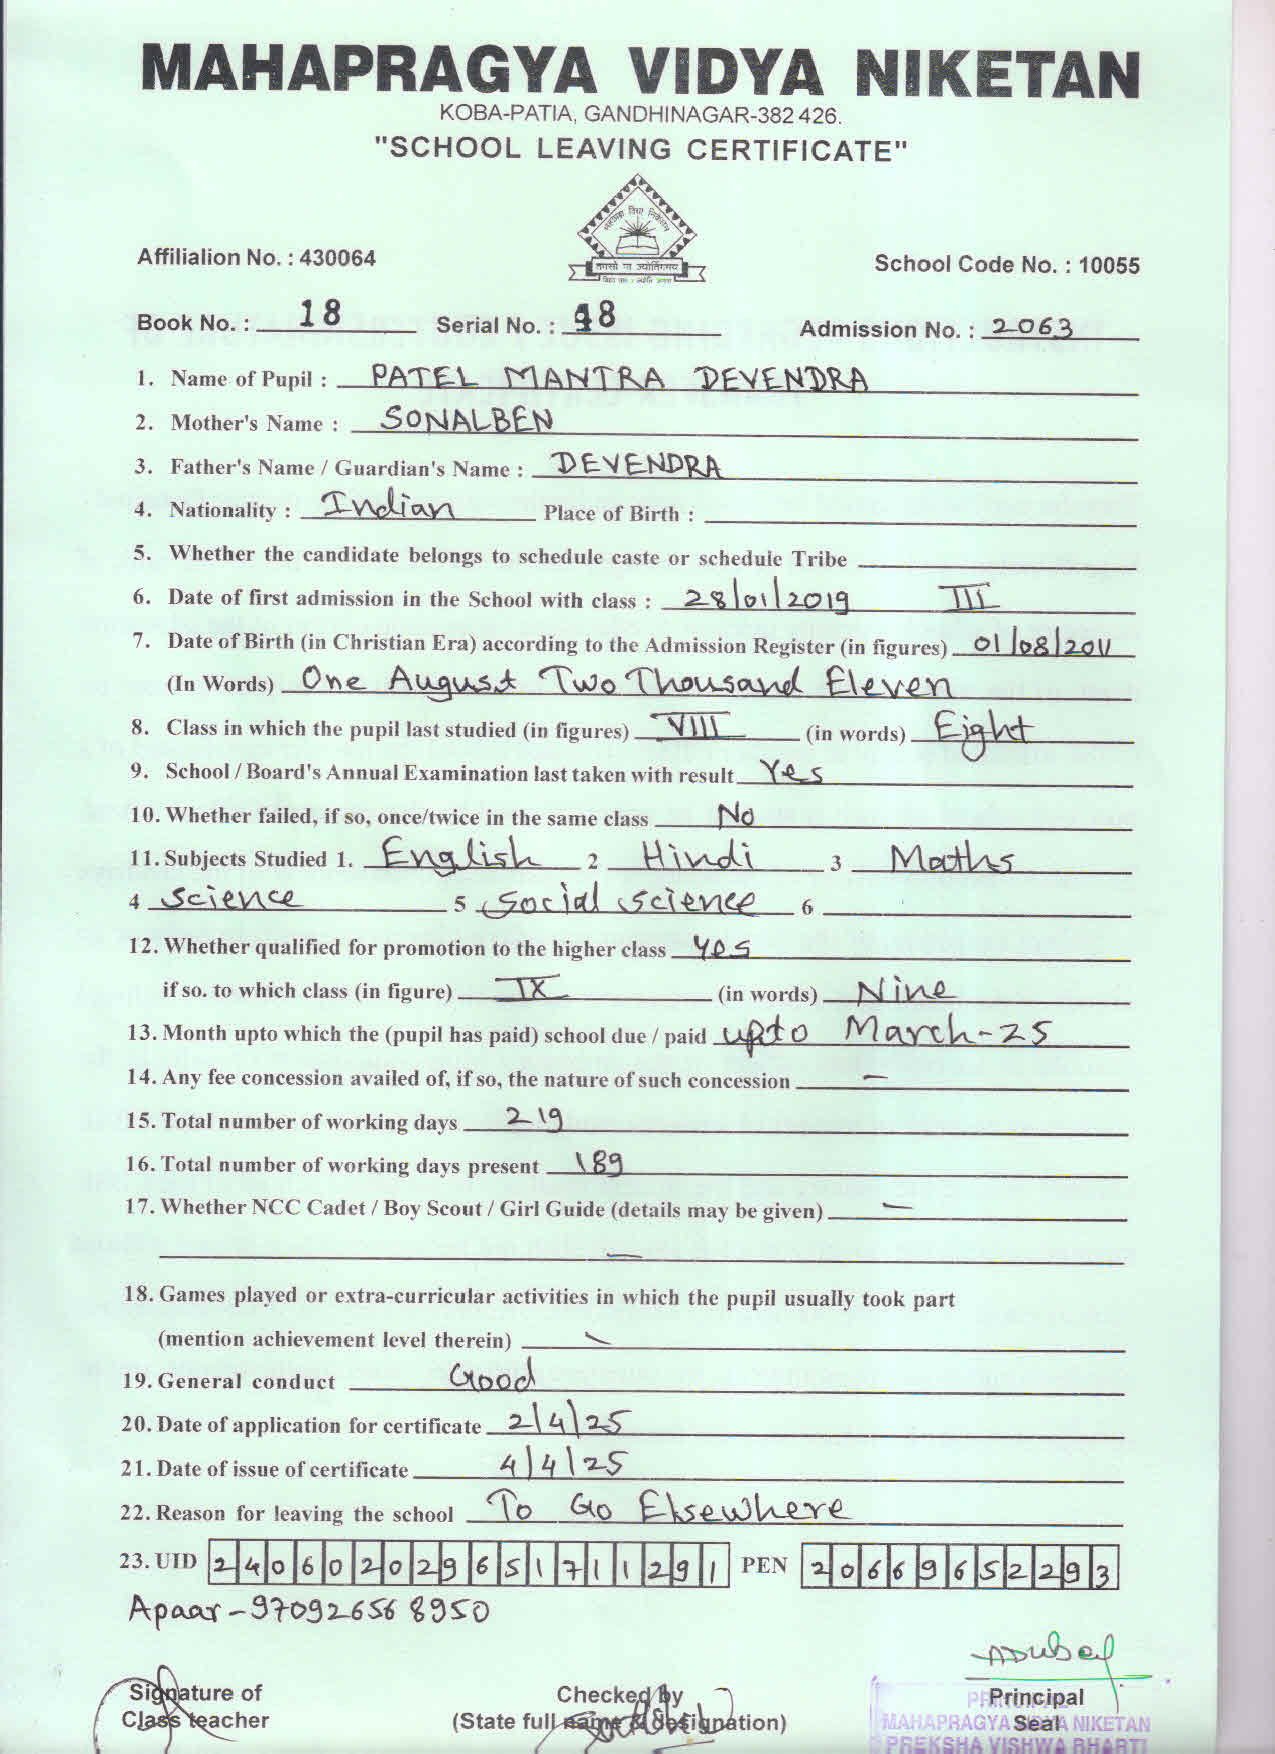 MAHAPRAGYA VIDYA NIKETAN
KOBA-PATIA, GANDHINAGAR-382 426.
"SCHOOL LEAVING CERTIFICATE"
महाप्रज्ञ विद्या निकेतन
तमसो मा ज्योतिर्गमय
Affilialion No. : 430064
School Code No. : 10055
Book No. : 18 Serial No. : 18 Admission No. : 2063
1. Name of Pupil : PATEL MANTRA DEVENDRA
2. Mother's Name : SONALBEN
3. Father's Name / Guardian's Name : DEVENDRA
4. Nationality : Indian Place of Birth :
5. Whether the candidate belongs to schedule caste or schedule Tribe
6. Date of first admission in the School with class : 28/01/2019 III
7. Date of Birth (in Christian Era) according to the Admission Register (in figures) 01/08/2011
(In Words) One August Two Thousand Eleven
8. Class in which the pupil last studied (in figures) VIII (in words) Eight
9. School / Board's Annual Examination last taken with result Yes
10. Whether failed, if so, once/twice in the same class No
11. Subjects Studied 1. English 2 Hindi 3 Maths
4 Science 5 Social Science 6
12. Whether qualified for promotion to the higher class Yes
if so. to which class (in figure) IX (in words) Nine
13. Month upto which the (pupil has paid) school due / paid upto March-25
14. Any fee concession availed of, if so, the nature of such concession —
15. Total number of working days 219
16. Total number of working days present 189
17. Whether NCC Cadet / Boy Scout / Girl Guide (details may be given) —
—
18. Games played or extra-curricular activities in which the pupil usually took part
(mention achievement level therein) —
19. General conduct Good
20. Date of application for certificate 2/4/25
21. Date of issue of certificate 4/4/25
22. Reason for leaving the school To Go Elsewhere
23. UID 240602029651711291 PEN 20669652293
Apaar-970926568950
ADubey
Signature of
Class teacher
Checked by
(State full name & designation)
Principal
Seal
PRINCIPAL
MAHAPRAGYA VIDYA NIKETAN
PREKSHA VISHWA BHARTI